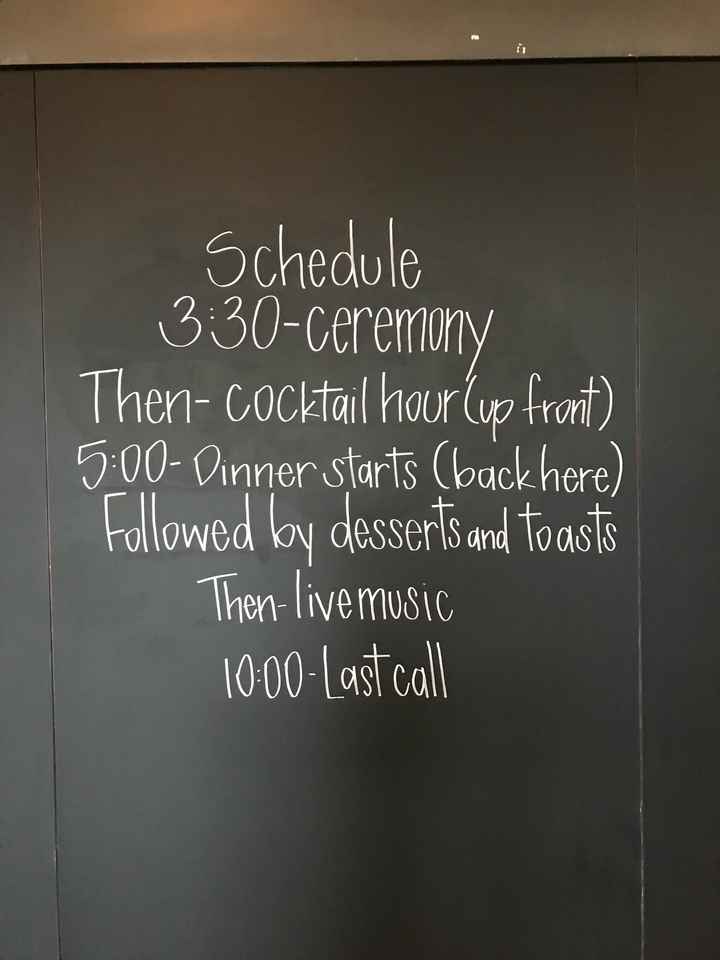 Schedule
3:30-ceremony
Then- cocktail hour (up front)
5:00- Dinner starts (back here)
Followed by desserts and toasts
Then- live music
10:00- Last call